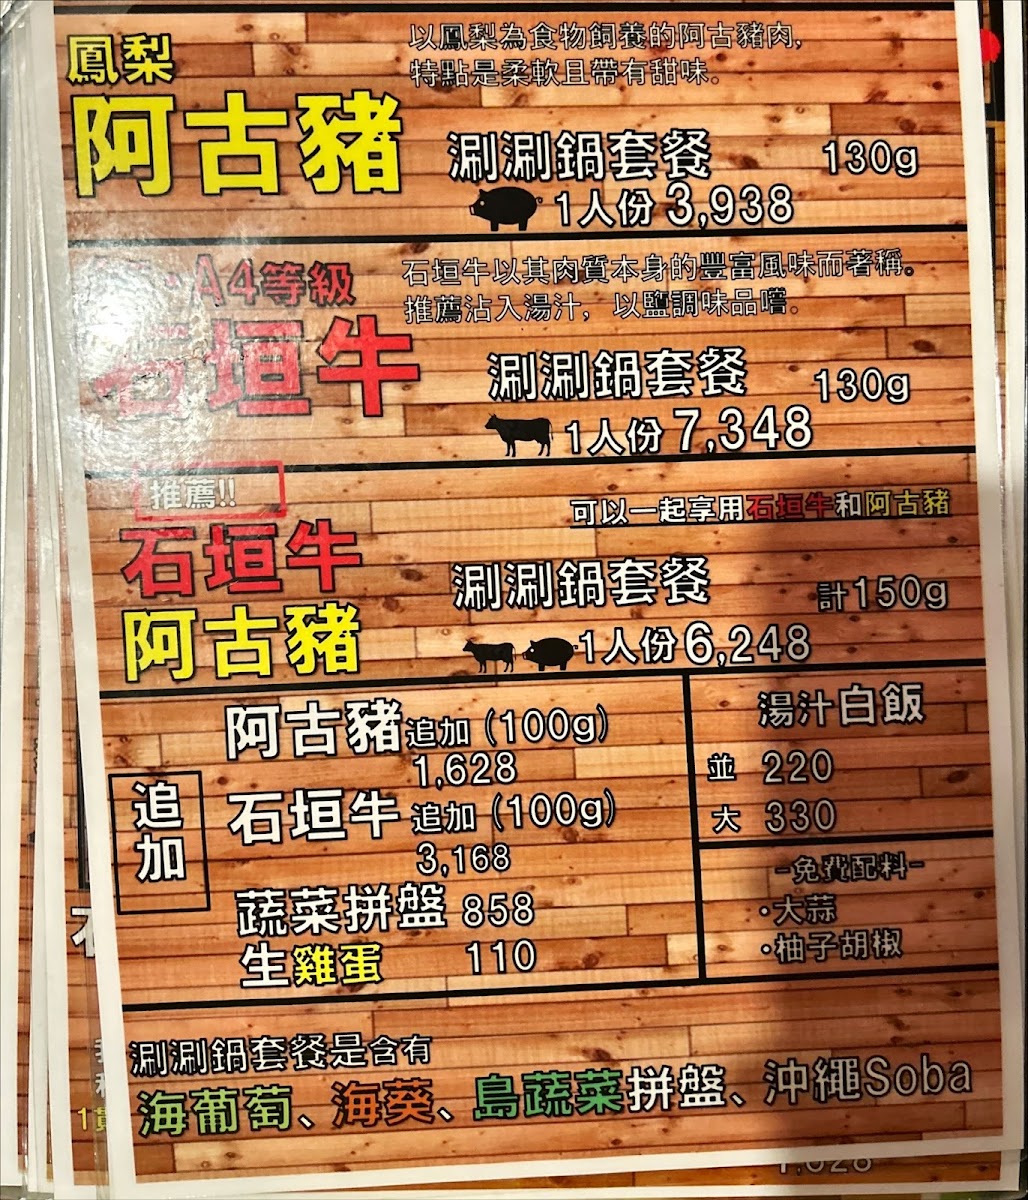 鳳梨
阿古豬
以鳳梨為食物飼養的阿古豬肉,
特點是柔軟且帶有甜味.
涮涮鍋套餐 130g
1人份 3,938
A4等級
石垣牛
石垣牛以其肉質本身的豐富風味而著稱。
推薦沾入湯汁, 以鹽調味品嚐.
涮涮鍋套餐 130g
1人份 7,348
推薦!!
石垣牛
阿古豬
可以一起享用石垣牛和阿古豬
涮涮鍋套餐 計150g
1人份 6,248
追加
阿古豬追加 (100g)
1,628
石垣牛 追加 (100g)
3,168
蔬菜拼盤 858
生雞蛋 110
湯汁白飯
並 220
大 330
-免費配料-
・大蒜
・柚子胡椒
涮涮鍋套餐是含有
海葡萄、海葵、島蔬菜拼盤、沖繩Soba
1,628